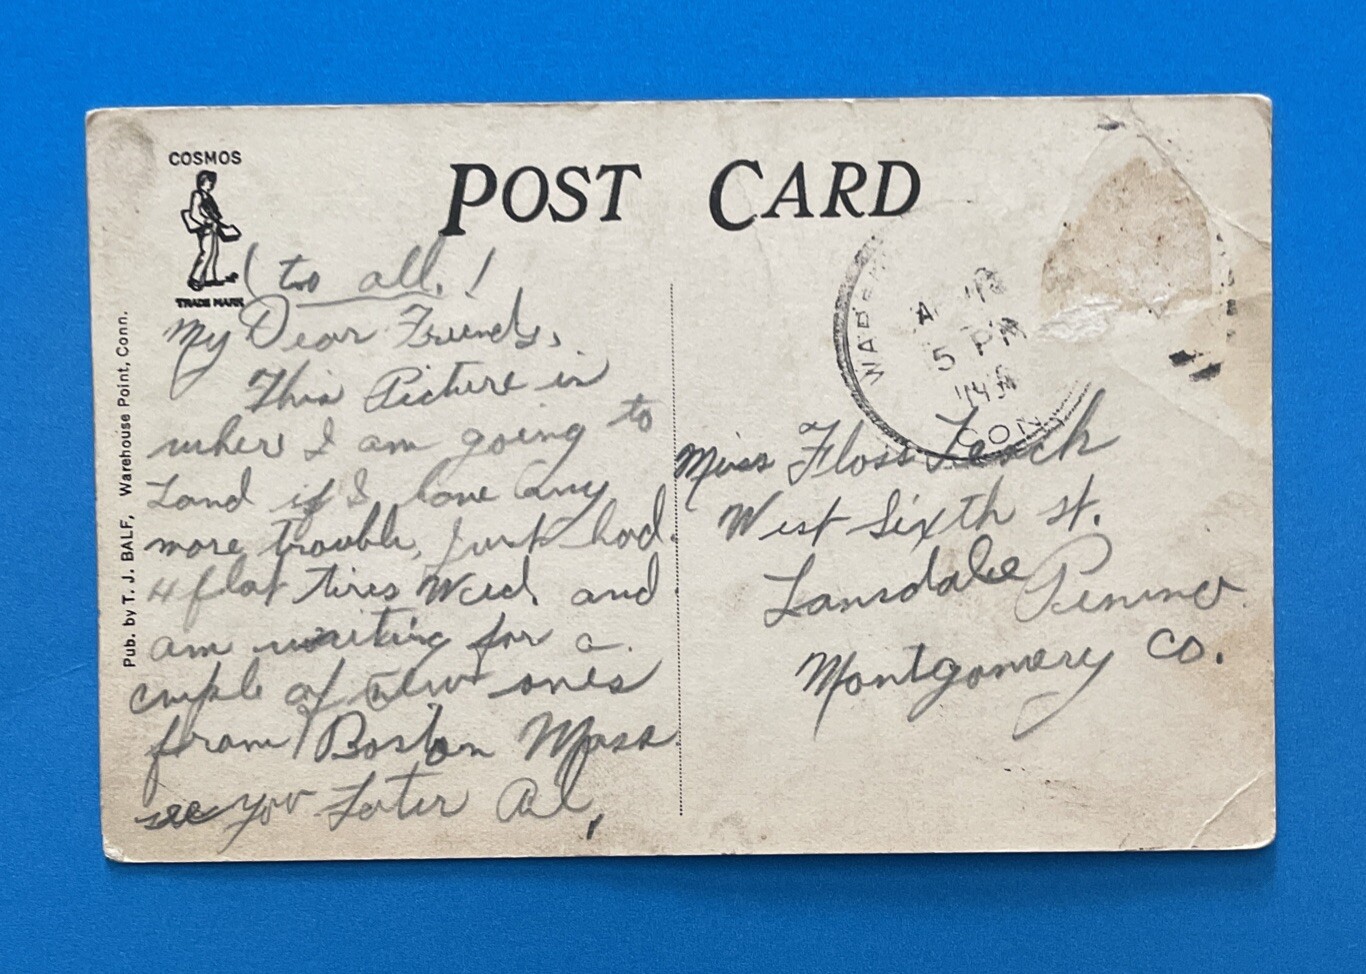 COSMOS
TRADE MARK
POST CARD
Pub. by T. J. BALF, Warehouse Point, Conn.
(to all.)
My Dear Friends,
This Picture is
where I am going to
Land if I have any
more trouble, Just had
4 flat tires Wed. and
am waiting for a
cuple of new ones
from Boston Mass.
see you Later Al,
5 PM
CON
Miss Floss
West Sixth St.
Lansdale Penna
Montgomery Co.